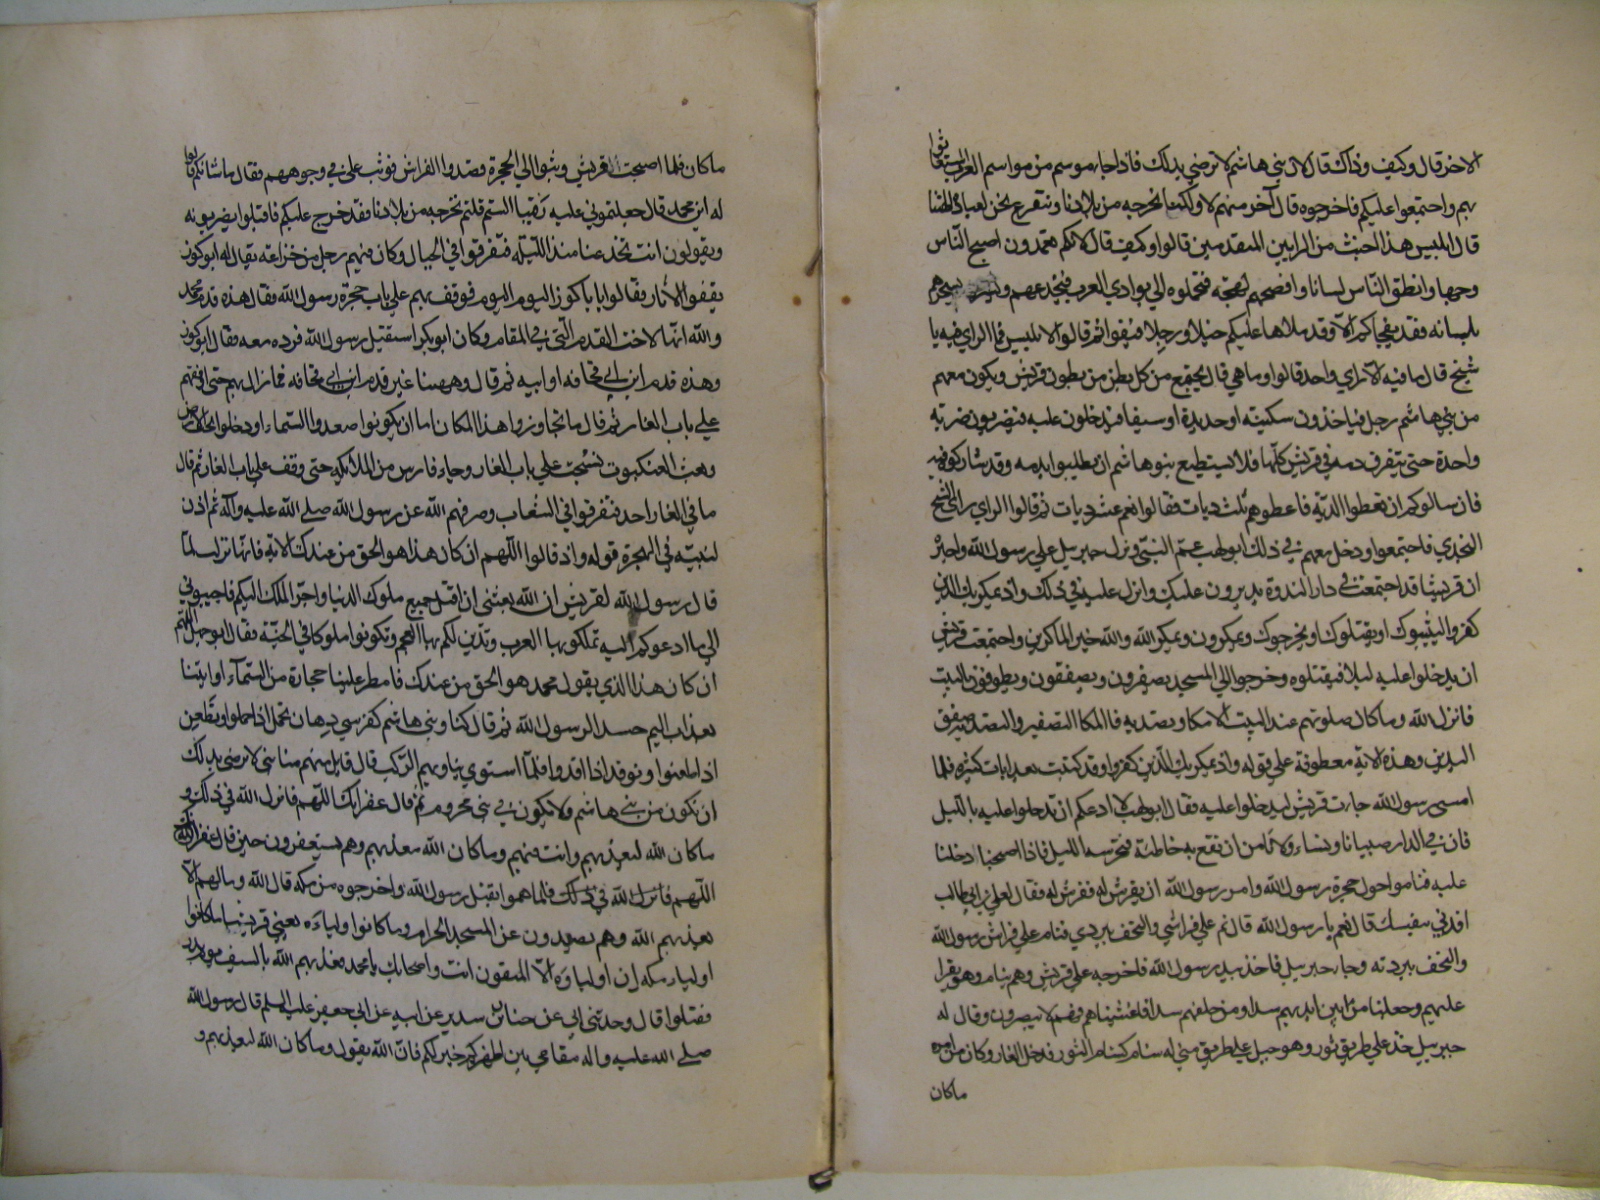 الاخر قال وكيف وذاك قال لان بني هاشم لا ترضي بذلك فاذا جاء موسم من مواسم العرب استغاثوا
بهم واجتمعوا عليكم فاخرجوه قال آخر منهم لا ولكنا نخرجه من بلادنا ونتفرع نحن لعبادة الهتنا
قال ابليس هذا اخبث من الرايين المتقدمين قالوا وكيف قال لانكم تعمدون اصبح النّاس
وجها وانطق النّاس لسانا وافصحهم لهجة فتحملوه الي بوادي العرب فيخدعهم ويسحرهم
بلسانه فقد يفجاكم الّا وقد ملاها عليكم خيلا ورجلا فبقوا ثم قالوا لابليس فما الراي فيه يا
شيخ قال ما فيه الّا راي واحد قالوا وما هي قال يجتمع من كل بطن من بطون قريش ويكون معهم
من بني هاشم رجل فياخذون سكينة او حديدة او سيفا فيدخلون عليه فيضربون ضربة
واحدة حتى يتفرق دمه في قريش كلّها فلا يستطيع بنو هاشم ان يطلبوا بدمه وقد شاركوه فيه
فان سالوكم ان تعطوا الديّة فاعطوهم ثلث ديات فقالوا نعم عشر ديات ثم قالوا الراي راي الشيخ
النجدي فاجتمعوا ودخل معهم في ذلك ابو لهب عمّ النبّي ونزل جبرييل علي رسول اللّه واخبره
ان قريشا قد اجتمعت في دار الندوة يدبرون عليك وانزل عليه في ذلك واذ يمكر بك الذين
كفروا ليثبتوك او يقتلوك او يخرجوك ويمكرون ويمكر اللّه واللّه خير الماكرين واجتمعت قريش
ان يدخلوا عليه ليلا فيقتلوه وخرجوا الي المسجد يصفرون ويصفقون ويطوفون بالبيت
فانزل اللّه وما كان صلوتهم عند البيت الا مكا وتصدية فالمكا التصفير والتصدية صفق
اليدين وهذه الاية معطوفة علي قوله واذ يمكر بك الّذين كفروا وقد كتبت بعد ايات كثيرة فلما
امسى رسول اللّه جاءت قريش ليدخلوا عليه فقال ابو لهب لا ادعكم ان تدخلوا عليه بالليل
فان في الدار صبيانا ونساء ولا نامن ان تقع به خاطئة فنحرسه الليل فاذا اصبحنا دخلنا
عليه فناموا حول حجرة رسول اللّه وامر رسول اللّه ان يفرش له ففرش له فقال لعلي بن ابي طالب
افدني بنفسك قال نعم يا رسول اللّه قال نم علي فراشي والتحف ببردي فنام علي فراش رسول اللّه
والتحف ببردته وجاء جبرييل فاخذ بيد رسول اللّه فاخرجه علي قريش وهم نيام وهو يقرا
عليهم وجعلنا من بين ايديهم سدا ومن خلفهم سدا فاغشيناهم فهم لا يبصرون وقال له
جبرييل خذ علي طريق ثور وهو جبل علي طريق مني له سنام كسنام الثور فدخل الغار وكان من امره
ما كان
ما كان فلما اصبحت قريش وثبوا الي الحجرة وقصدوا الفراش فوثب علي في وجوههم فقال ما شانكم قالوا
له اين محمد قال جعلتموني عليه رقيبا الستم قلتم نخرجه من بلادنا فقد خرج عليكم فاقبلوا يضربونه
ويقولون انت تخدعنا منذ اللّيلة فتفرقوا في الجبال وكان فيهم رجل من خزاعة يقال له ابو كرز
يقفوا الآثار فقالوا يا با كرز اليوم اليوم فوقف بهم علي باب حجرة رسول اللّه فقال هذه قدم محمد
واللّه انّها لاخت القدم الّتي في المقام وكان ابو بكر استقبل رسول اللّه فرده معه فقال ابو كرز
وهذه قدم ابن ابي قحافه او ابيه ثم قال وههنا غير قدم ابن ابي قحافه فما زال بهم حتى اوقفهم
علي باب الغار ثم قال ما تجاوزوا هذا المكان اما ان يكونوا صعدوا السّماء او دخلوا تحت الارض
وبعث العنكبوت فنسجت علي باب الغار وجاء فارس من الملائكة حتى وقف علي باب الغار ثم قال
ما في الغار احد فتفرقوا في الشعاب وصرفهم اللّه عن رسول اللّه صلى اللّه عليه وآله ثم اذن
لنبيّه في الهجرة قوله واذ قالوا اللّهم ان كان هذا هو الحق من عندك الاية فانّها نزلت لمّا
قال رسول اللّه لقريش ان اللّه بعثني ان اقتل جميع ملوك الدنيا واجرّ الملك اليكم فاجيبوني
الي ما ادعوكم اليه تملكو بها العرب وتدين لكم بها العجم وتكونوا ملوكا في الجنّة فقال ابو جهل اللهم
ان كان هذا الذي يقول محمد هو الحق من عندك فامطر علينا حجارة من السّماء او ايتنا
بعذاب اليم حسدا لرسول اللّه ثم قال كنا وبني هاشم كفرسي رهان نحمل اذا حملوا ونطعن
اذا طعنوا ونوقد اذا اوقدوا فلمّا استوي بنا وبهم الرّكب قال قايل منهم منا نبي لا نرضي بذلك
ان يكون من بني هاشم ولا يكون في بني مخزوم ثم قال غفرانك اللّهم فانزل اللّه في ذلك و
ما كان اللّه ليعذبهم وانت فيهم وما كان اللّه معذبهم وهم يستغفرون حين قال غفرانك
اللّهم فانزل اللّه في ذلك فلما هموا بقتل رسول اللّه واخرجوه من مكه قال اللّه وما لهم الّا
يعذبهم اللّه وهم يصدون عن المسجد الحرام وما كانوا اولياءه يعني قريشا ما كانوا
اولياء مكه ان اولياؤه الّا المتقون انت واصحابك يا محمد فعذبهم اللّه بالسيف يوم بدر
فقتلوا قال وحدثني ابي عن حنان بن سدير عن ابيه عن ابي جعفر عليه السلم قال رسول اللّه
صلى اللّه عليه واله مقامي بين اظهركم خير لكم فانّ اللّه يقول وما كان اللّه ليعذبهم و